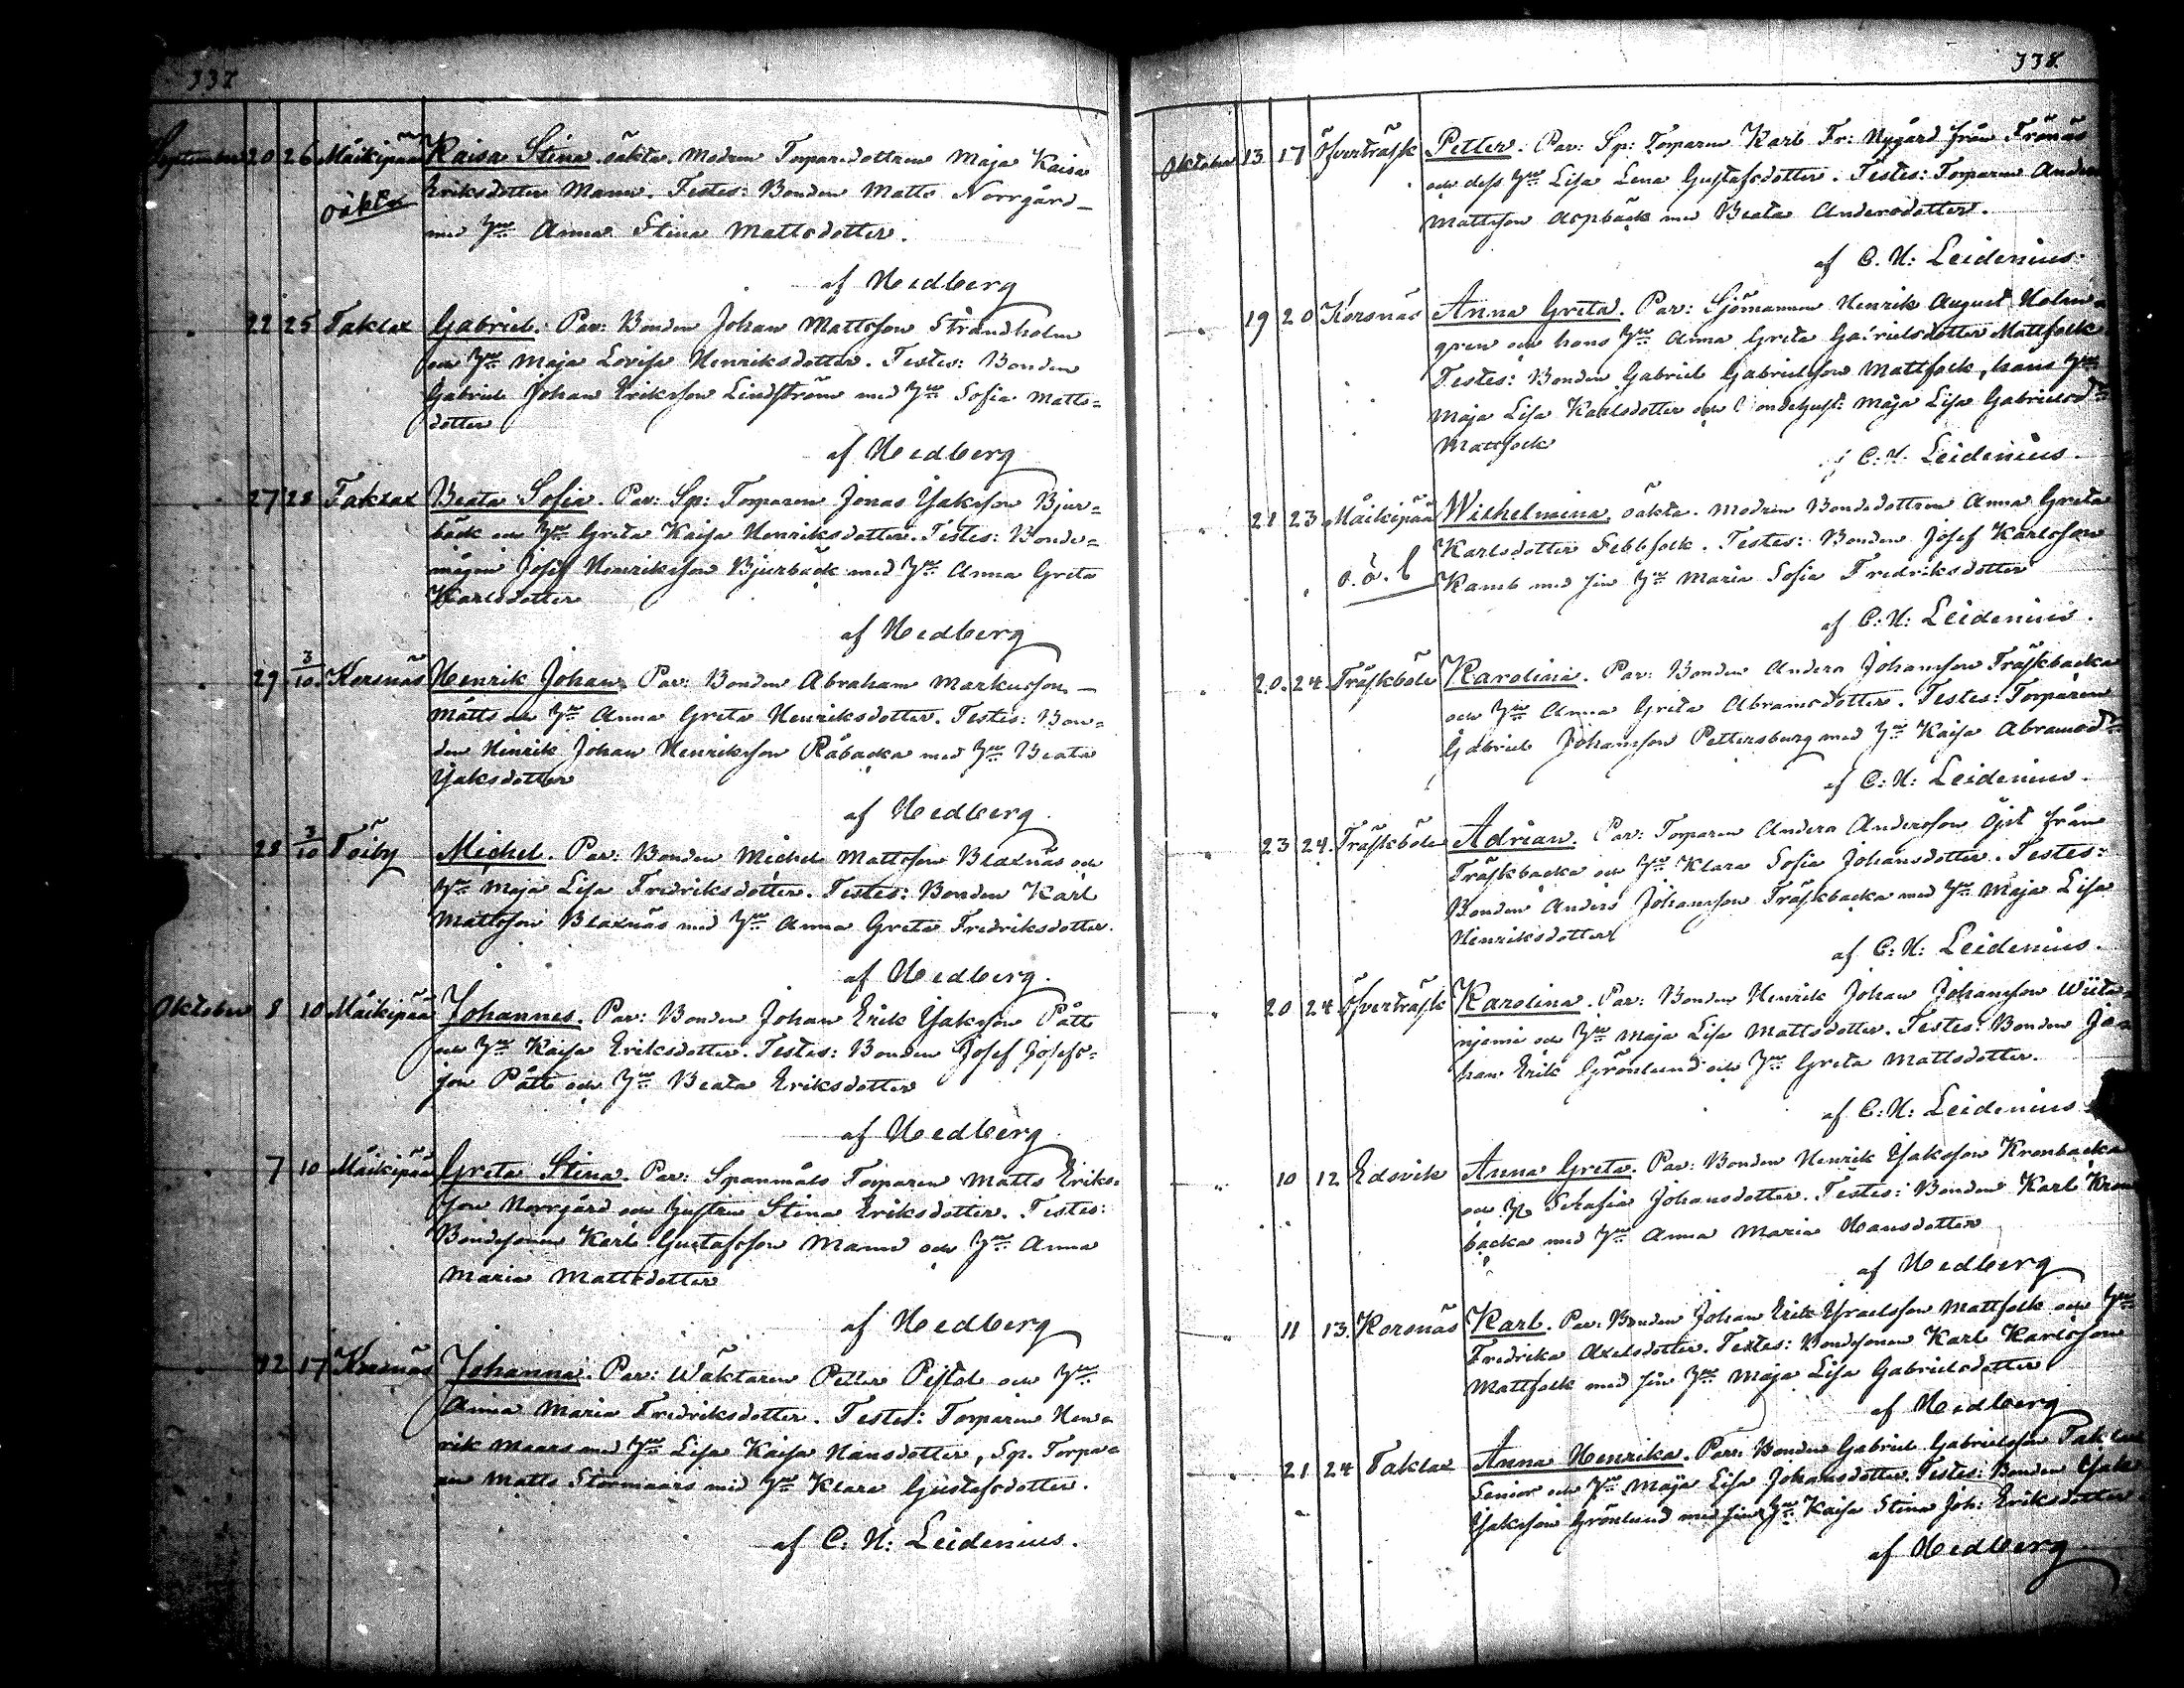 337
September 20 26 Måikipää Kaisa Stina oäkta. Modren Torparedottren Maja Kaisa
oäkta Eriksdotter Mann. Testes: Bonden Matts Norrgård
med h:u Anna Stina Mattsdotter.
af Hedberg
22 25 Taklax Gabriel. Par: Bonden Johan Mattsson Strandholm
och h:u Maja Lovisa Henriksdotter. Testes: Bonden
Gabriel Johan Eriksson Lindström med h:u Sofia Matts=
dotter
af Hedberg
27 28 Taklax Beata Sofia. Par: Sp: Torparen Jonas Isaksson Bjur=
bäck och h:u Greta Kaisa Henriksdotter. Testes: Bonde=
mågen Josef Henriksson Bjurbäck med h:u Anna Greta
Karlsdotter
af Hedberg
29 3/10 Korsnäs Henrik Johan. Par: Bonden Abraham Markusson
Mätts och h:u Anna Greta Henriksdotter. Testes: Bon=
den Henrik Johan Henriksson Råbacka med h:u Beata
Isaksdotter
af Hedberg.
28 3/10 Töiby Michel. Par: Bonden Michel Mattsson Blaxnäs och
h:u Maja Lisa Fredriksdotter. Testes: Bonden Karl
Mattsson Blaxnäs med h:u Anna Greta Fredriksdotter.
af Hedberg.
Oktober 8 10 Måikipää Johannes. Par: Bonden Johan Erik Isaksson Påtts
och h:u Kaisa Eriksdotter. Testes: Bonden Josef Josefs=
son Påtts och h:u Beata Eriksdotter
af Hedberg
7 10 Måikipää Greta Stina. Par: Spanmåls Torparen Matts Eriks=
son Norrgård och hustrun Stina Eriksdotter. Testes:
Bondesonen Karl Gustafsson Mann och h:u Anna
Maria Mattsdotter
af Hedberg
12 17 Korsnäs Johanna. Par: Wäktaren Petter Pistol och h:u
Anna Maria Fredriksdotter. Testes: Torparen Hen=
rik Maars med h:u Lisa Kaisa Hansdotter, Sp. Torpa=
ren Matts Stormaars med h:u Klara Gustafsdotter.
af C: H: Leidenius.
338
Oktober 13 17 Öfverträsk Petter. Par: Sp: Torparen Karl Fr: Nygård från Tränäs
och dess h:u Lisa Lena Gustafsdotter. Testes: Torparen Anders
Mattsson Aspbäck med Beata Andersdotter.
af C. H: Leidenius.
19 20 Korsnäs Anna Greta. Par: Sjömannen Henrik August Holm=
gren och hans h:u Anna Greta Gabrielsdotter Mattfolk
Testes: Bonden Gabriel Gabrielsson Mattfolk, hans h:u
Maja Lisa Karlsdotter och Bondehust: Maja Lisa Gabrielsd:r
Mattfolk
af C: H: Leidenius.
21 23 Måikipää Wilhelmina, oäkta. Modren Bondedottren Anna Greta
o.ä. Karlsdotter Sebbfolk. Testes: Bonden Josef Karlsson
Kamb med sin h:u Maria Sofia Fredriksdotter
af C: H: Leidenius.
20. 24. Träskböle Karolina. Par: Bonden Anders Johansson Träskbacka
och h:u Anna Greta Abramsdotter. Testes: Torparen
Gabriel Johansson Pettersburg med h:u Kaisa Abramsd:r
af C: H: Leidenius.
23 24. Träskböle Adrian. Par: Torparen Anders Andersson Öjst från
Träskbacka och h:u Klara Sofia Johansdotter. Testes:
Bonden Anders Johansson Träskbacka med h:u Maja Lisa
Henriksdotter
af C: H: Leidenius.
20 24 Öfverträsk Karolina. Par: Bonden Henrik Johan Johansson Wiita=
niemi och h:u Maja Lisa Mattsdotter. Testes: Bonden Jo=
han Erik Grönlund och h:u Greta Mattsdotter.
af C: H: Leidenius
10 12 Edsvik Anna Greta. Par: Bonden Henrik Isaksson Kronbacka
och h Serafia Johansdotter. Testes: Bonden Karl Kron
backa med h:u Anna Maria Hansdotter
af Hedberg
11 13 Korsnäs Karl. Par: Bonden Johan Erik Israelsson Mattfolk och h:u
Fredrika Axelsdotter. Testes: Bondesonen Karl Karlsson
Mattfolk med sin h:u Maja Lisa Gabrielsdotter
af Hedberg
21 24 Taklax Anna Henrika. Par: Bonden Gabriel Gabrielsson Taklax
Senior och h:u Maja Lisa Johansdotter. Testes: Bonden Isak
Isaksson Grönlund med sin h:u Kaisa Stina Joh: Eriksdotter
af Hedberg